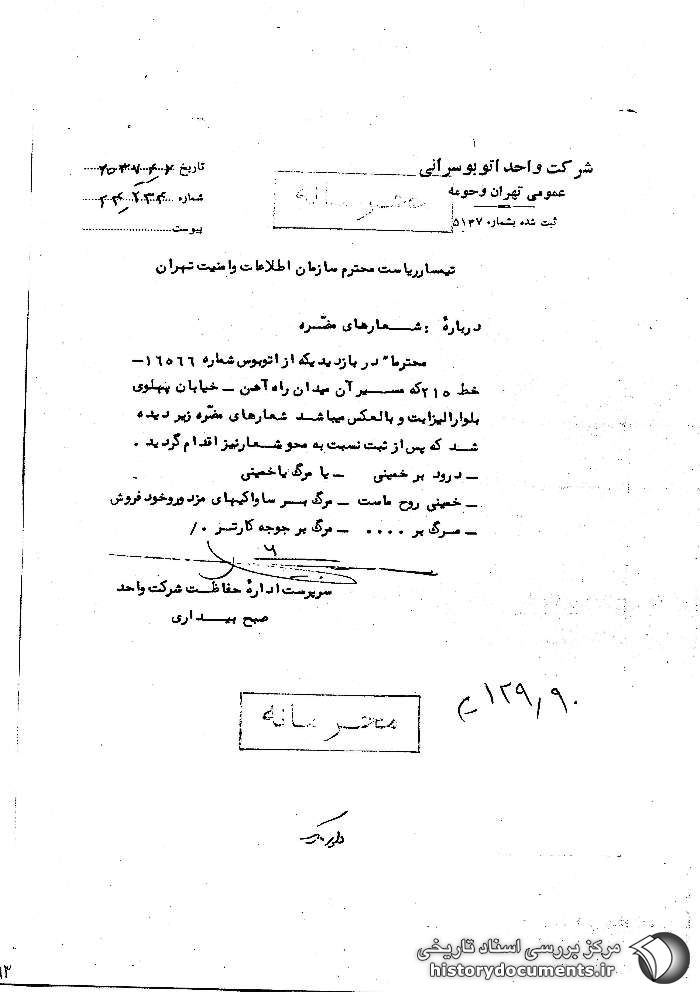 شرکت واحد اتوبوسرانی
عمومی تهران وحومه
ثبت شده بشماره ۵۱۳۷
تاریخ
شماره
پیوست
محرمانه
تیمسار ریاست محترم سازمان اطلاعات وامنیت تهران
درباره : شعارهای مضّره
محترما" در بازدیدیکه از اتوبوس شماره ۱۶۵۶۶ –
خط ۲۱۵ که مسیر آن میدان راه آهن – خیابان پهلوی
بلوارالیزابت و بالعکس میباشد شعارهای مضّره زیر دیده
شد که پس از ثبت نسبت به محو شعارنیز اقدام گردید .
– درود بر خمینی – یا مرگ یاخمینی
– خمینی روح ماست – مرگ بر ساواکیهای مزدوروخود فروش
– مرگ بر .... – مرگ بر جوجه کارتر ./
سرپرست اداره حفاظت شرکت واحد
صبح بیداری
۱۲۹٫۹۰
محرمانه
مرکز بررسی اسناد تاریخی
historydocuments.ir